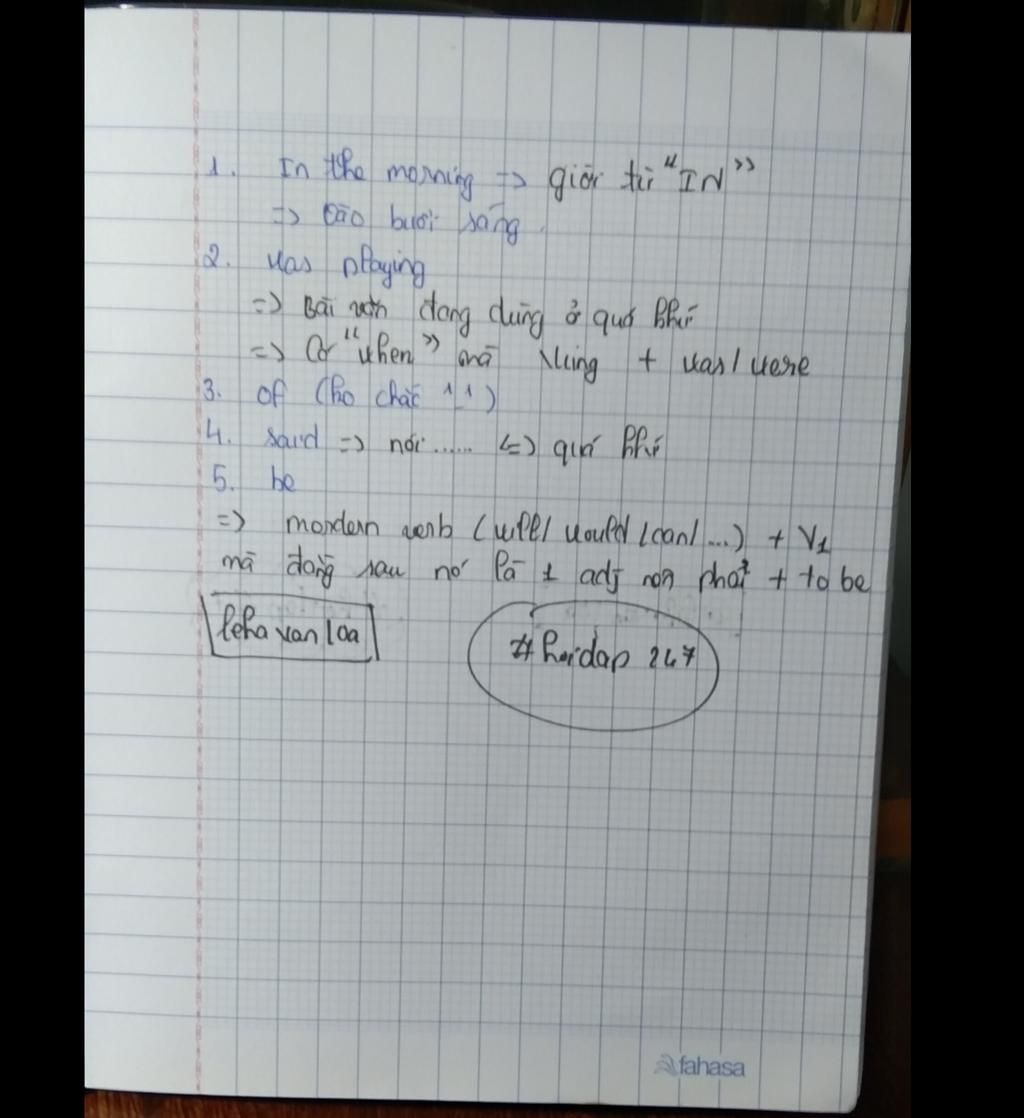 1. In the morning => giới từ "IN"
=> vào buổi sáng.
2. was playing
=> Bài văn đang dùng ở quá khứ
=> Có "when" mà Ving + was/were
3. of (ko chắc ^_^)
4. said => nói ..... <=> quá khứ
5. be
=> mordern verb (will/ would /can/ ...) + V1
mà đằng sau nó là 1 adj nên phải + to be
leha van loa
# hoidap 247
fahasa